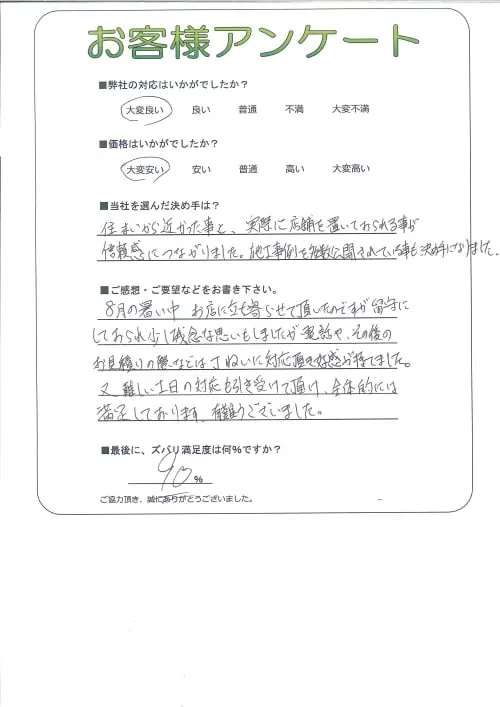 お客様アンケート
■弊社の対応はいかがでしたか？
大変良い 良い 普通 不満 大変不満
■価格はいかがでしたか？
大変安い 安い 普通 高い 大変高い
■当社を選んだ決め手は？
住まいから近かった事と、実際に店舗を置いておられる事が
信頼感につながりました。施工事例を多数公開されている事も決め手になりました。
■ご感想・ご要望などをお書き下さい。
8月の暑い中 お店に立ち寄らせて頂いたのですが留守に
しておられ少し残念な思いもしましたが電話や、その後の
お見積りの際などでは丁ねいに対応頂き好感が持てました。
又、難しい土日の対応も引き受けて頂け、全体的には
満足しております。有難うございました。
■最後に、ズバリ満足度は何%ですか？
90%
ご協力頂き、誠にありがとうございました。